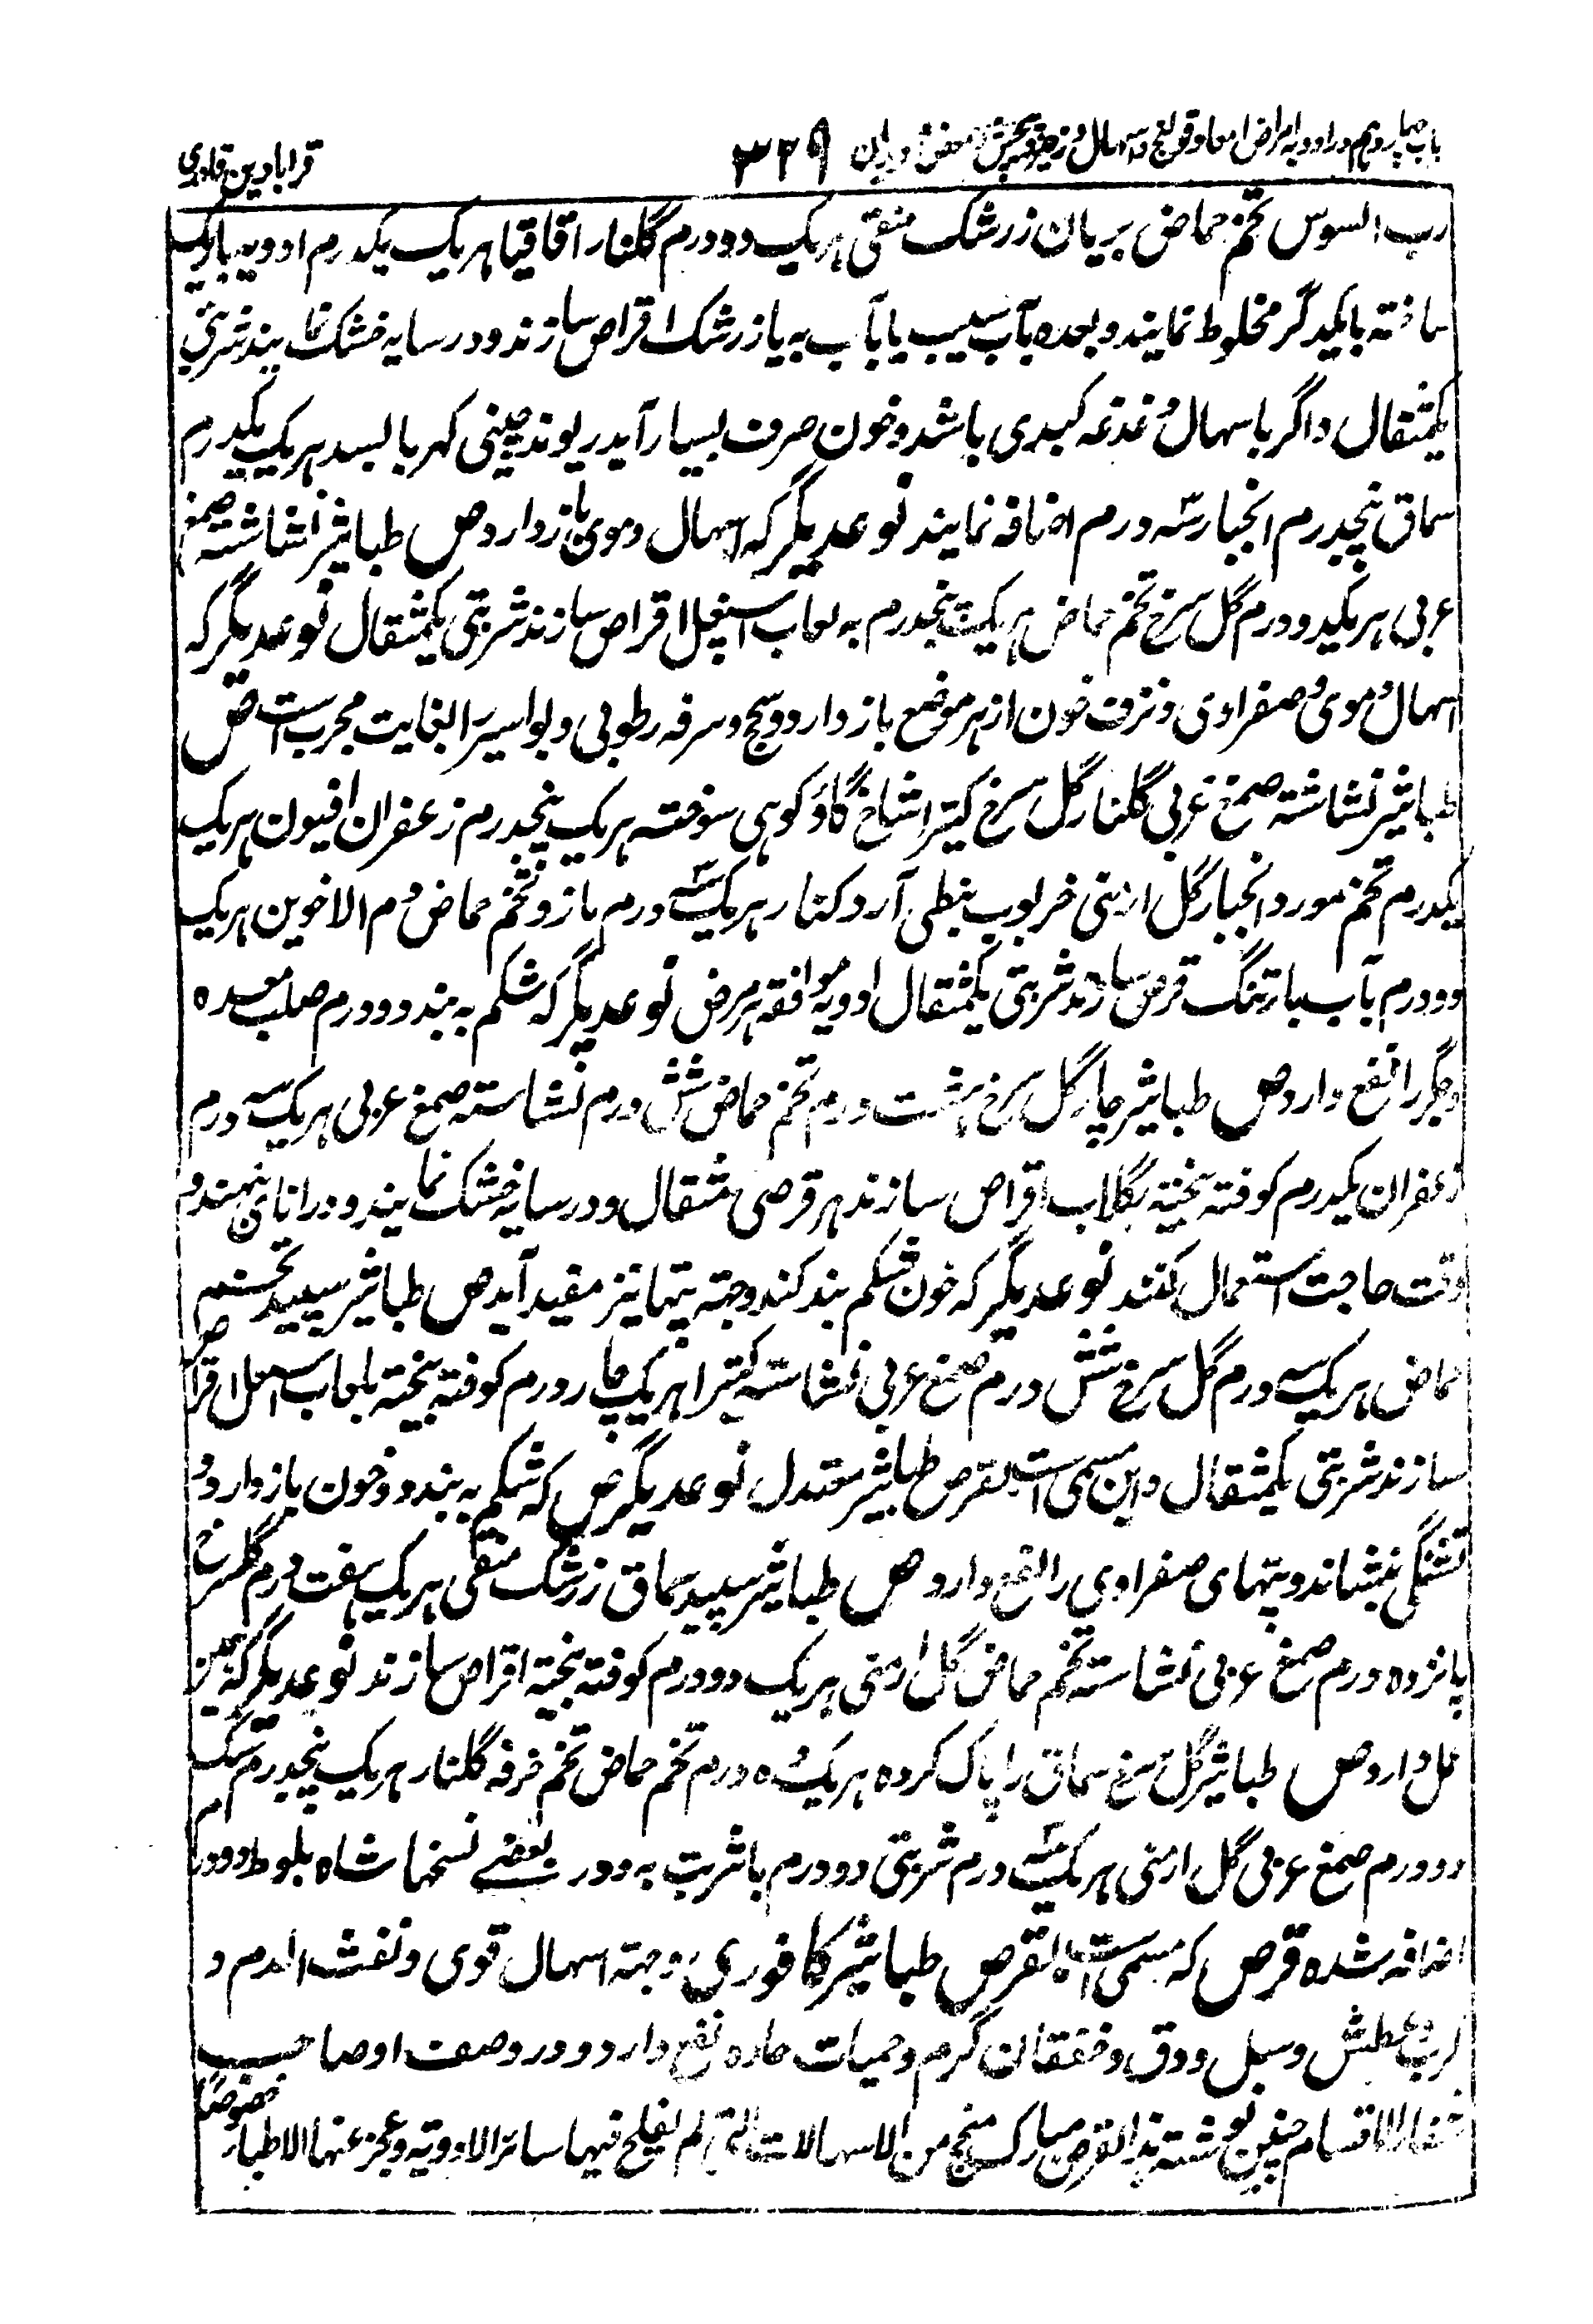 باب چهاردهم در ادویه امراض امعا و قولنج و اسهال و زحیر و پیچش و مغص و دیدان ۳۳۹ قرابادین قادری
رب السوس تخم حماض بریان زرشک منقی هریک دو درم گلنار اقاقیا هریک یکدرم ادویه باریک
ساخته با یکدگر مخلوط نمایند و بعده بآب سیب یا بآب به یا زرشک اقراص سازند و در سایه خشک نمایند شربتی
یکمثقال و اگر با اسهال دغدغه کبدی باشد و خون صرف بسیار آید ریوند چینی کهربا بسد هریک یکدرم
سماق پنجدرم انجبار سه درم اضافه نمایند نوعدیگر که اسهال دموی باز دارد ص طباشیر نشاشته صمغ
عربی هریکدو درم گل سرخ تخم حماض هریک پنجدرم به لعاب اسپغل اقراص سازند شربتی یکمثقال نوعدیگر که
اسهال دموی و صفراوی و نزف خون از هر موضع باز دارد و سحج و سرفه رطوبی و بواسیر را بغایت مجرب است ص
طباشیر نشاشته صمغ عربی گلنار گل سرخ کتیرا شاخ گاو کوهی سوخته هریک پنجدرم زعفران افیون هریک
یکدرم تخم مورد انجبار گل ارمنی خرنوب نبطی آرد کنار هریک سه درم مازو تخم حماض دم الاخوین هریک
دو درم بآب بارتنگ قرص سازند شربتی یکمثقال ادویه موافقه هر مرض نوعدیگر که شکم به بندد و ورم صلب معده
و جگر را نفع دارد ص طباشیر چار گل سرخ هشت درم تخم حماض شش درم نشاسته صمغ عربی هریک سه درم
زعفران یکدرم کوفته بیخته بگلاب اقراص سازند هر قرصی مثقال و در سایه خشک نمایند و در انای بنهند و
وقت حاجت استعمال کنند نوعدیگر که خون شکم بند کند و جهته تپها نیز مفید آید ص طباشیر سپید تخم
حماض هریک سه درم گل سرخ شش درم صمغ عربی نشاسته کتیرا هریک چار درم کوفته بیخته بلعاب اسپغل اقراص
سازند شربتی یکمثقال و این مسمی است بقرص طباشیر معتدل نوعدیگر ص که شکم به بندد و خون باز دارد و
تشنگی بنشاند و تپهای صفراوی را نفع دارد ص طباشیر سپید سماق زرشک منقی هریک هفت درم گلسرخ
پانزده درم صمغ عربی نشاسته تخم حماض گل ارمنی هریک دو درم کوفته بیخته اقراص سازند نوعدیگر که همین
عمل دارد ص طباشیر گل سرخ سماق را پاک کرده هریک ده درم تخم حماض تخم خرفه گلنار هریک پنجدرم سک
دو درم صمغ عربی گل ارمنی هریک سه درم شربتی دو درم با شربت به و در بعضے نسخها شاه بلوط دو درم
اضافه شده قرص که مسمی است بقرص طباشیر کافوری و جهته اسهال قوی و نفث الدم و
کرب و عطش و سل و دق و خفقان گرم و حمیات حاده نفع دارد و در وصف او صاحب
شفاء الاقسام چنین نوشته هذا القرص مبارک منجح من الاسهالات التی لم یفلح فیها سائر الادویة و عجز عنها الاطباء خصوصا